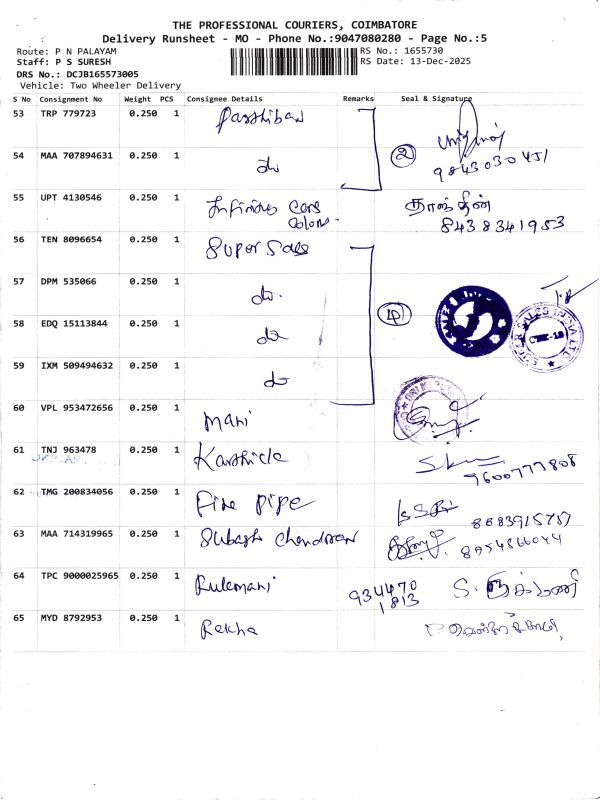 THE PROFESSIONAL COURIERS, COIMBATORE
Delivery Runsheet - MO - Phone No.:9047080280 - Page No.:5
Route: P N PALAYAM
RS No.: 1655730
Staff: P S SURESH
RS Date: 13-Dec-2025
DRS No.: DCJB165573005
Vehicle: Two Wheeler Delivery
S No Consignment No Weight PCS Consignee Details Remarks Seal & Signature
53 TRP 779723 0.250 1 Parthiban
54 MAA 707894631 0.250 1 do 2 9843030451
55 UPT 4130546 0.250 1 Infinitus Cars Colons
8438341953
56 TEN 8096654 0.250 1 Super Sales
57 DPM 535066 0.250 1 do.
58 EDQ 15113844 0.250 1 do
59 IXM 509494632 0.250 1 do
60 VPL 953472656 0.250 1 Mani
61 TNJ 963478 0.250 1 Karthick 9600777808
62 TMG 200834056 0.250 1 Fire pipe 8883915757
63 MAA 714319965 0.250 1 Subash Chandran 8754866044
64 TPC 9000025965 0.250 1 Rukmani 934470 1813 S. ருக்மணி
65 MYD 8792953 0.250 1 Rekha